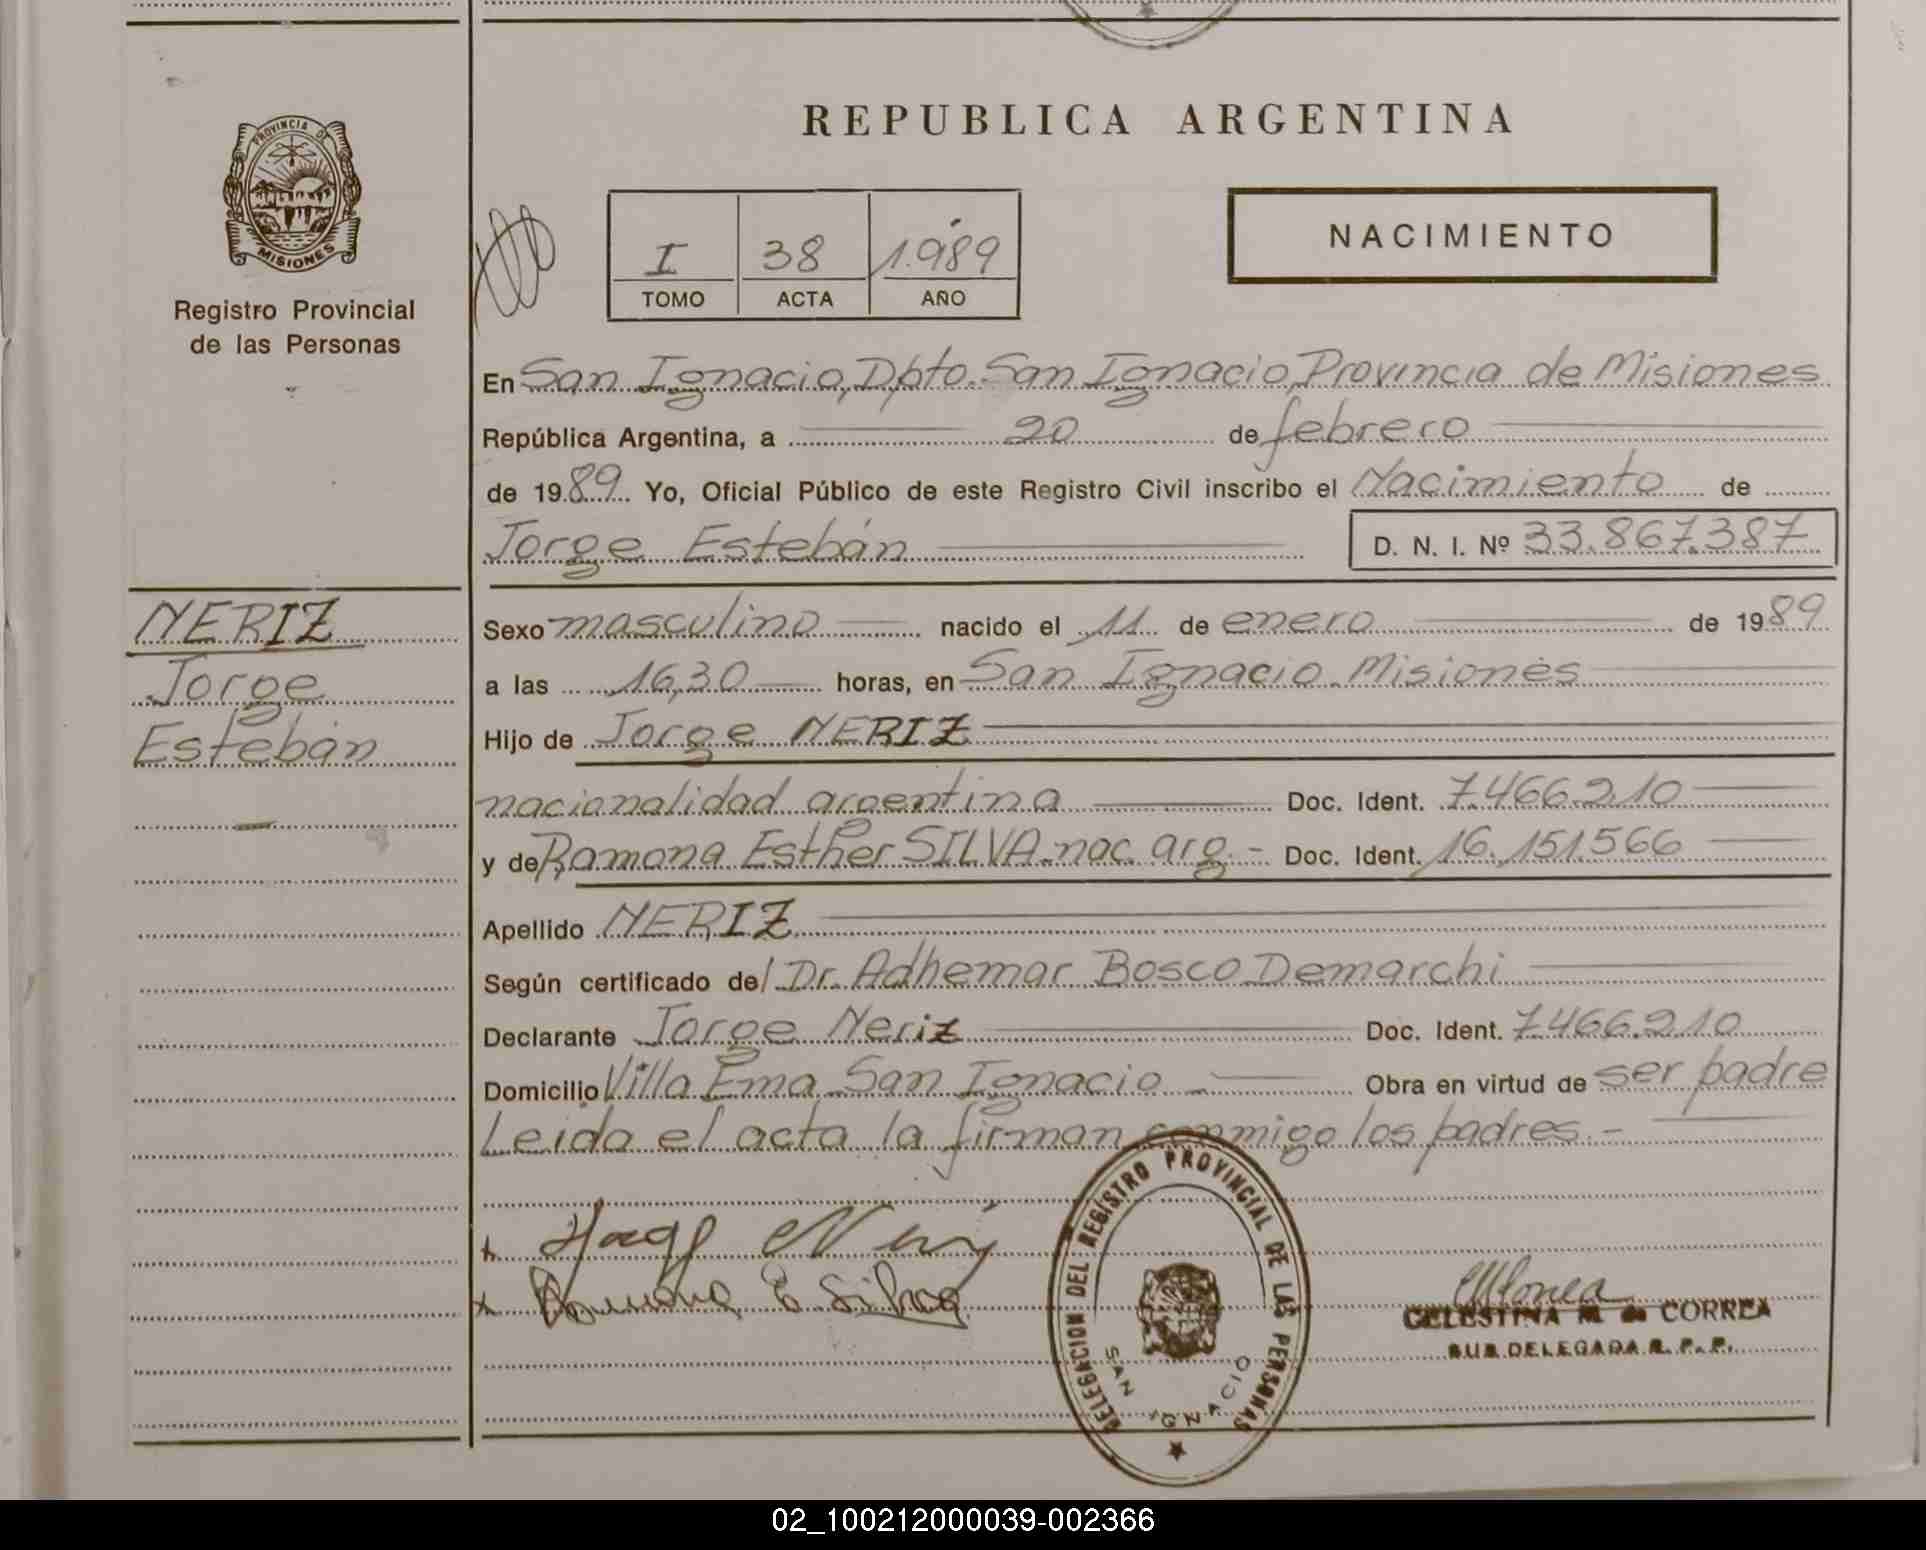 REPUBLICA ARGENTINA
PROVINCIA DE
MISIONES
Registro Provincial
de las Personas
I 38 1.989
TOMO ACTA AÑO
NACIMIENTO
En San Ignacio, Dpto. San Ignacio, Provincia de Misiones
República Argentina, a 20 de febrero
de 1989. Yo, Oficial Público de este Registro Civil inscribo el Nacimiento de
Jorge Estebán D. N. I. Nº 33.867.387
NERIZ
Jorge
Estebán
Sexo masculino nacido el 11 de enero de 1989
a las 16,30 horas, en San Ignacio. Misiones
Hijo de Jorge NERIZ
nacionalidad argentina Doc. Ident. 7.466.210
y de Ramona Esther SILVA. nac. arg.- Doc. Ident. 16.151.566
Apellido NERIZ
Según certificado del Dr. Adhemar Bosco Demarchi
Declarante Jorge Neriz Doc. Ident. 7.466.210
Domicilio Villa Ema. San Ignacio Obra en virtud de ser padre
Leida el acta la firman conmigo los padres.-
Ramona E Silva
DELEGACION DEL REGISTRO PROVINCIAL DE LAS PERSONAS
SAN IGNACIO
CELESTINA M. de CORREA
SUB DELEGADA R. P. P.
02_100212000039-002366